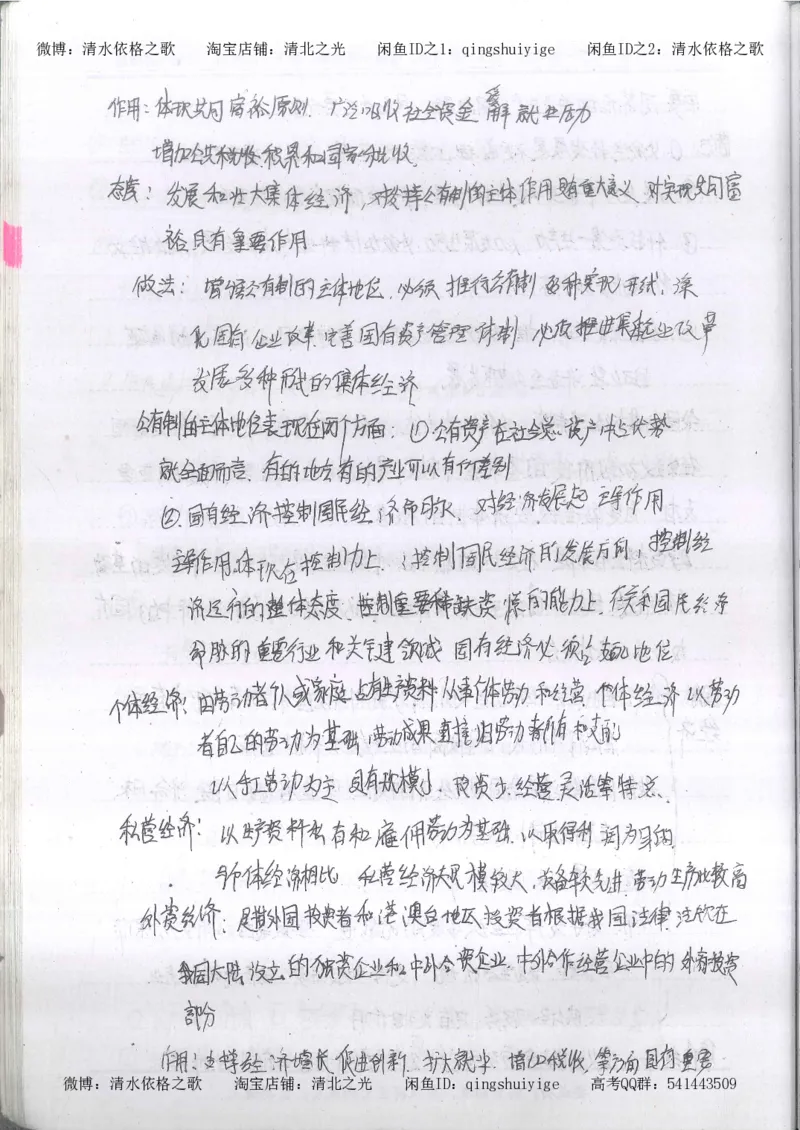 微博：清水依格之歌 淘宝店铺：清北之光 闲鱼ID之1：qingshuiyige 闲鱼ID之2：清水依格之歌
作用：体现共同富裕原则，广泛吸收社会资金，缓解就业压力
增加公共积累和国家税收
态度：发展和壮大集体经济，对发挥公有制的主体作用有重大意义，对实现共同富
裕具有重要作用
做法：增强公有制的主体地位，必须推行公有制多种实现形式，深
化国有企业改革，完善国有资产管理体制，必须推进集体企业改革
发展多种形式的集体经济
公有制的主体地位表现在两个方面：①公有资产在社会总资产中占优势
就全国而言，有的地方有的产业可以有所差别
②国有经济控制国民经济命脉，对经济发展起主导作用
主导作用体现在控制力上：控制国民经济的发展方向，控制经
济运行的整体态度，控制重要稀缺资源的能力上，在关系国民经济
命脉的重要行业和关键领域，国有经济必须占支配地位
个体经济：由劳动者个人或家庭占有生产资料从事个体劳动和经营，个体经济以劳动
者自己的劳动为基础，劳动成果直接归劳动者所有和支配
以手工劳动为主，具有规模小，投资少，经营灵活等特点
私营经济：以生产资料私有和雇佣劳动为基础，以取得利润为目的
与个体经济相比，私营经济大规模较大，设备较先进，劳动生产比较高
外资经济：是指外国投资者和港澳台地区投资者根据我国法律法规在
我国大陆设立的独资企业和中外合资企业，中外合作经营企业中的外商投资
部分
作用：支撑经济增长，促进创新，扩大就业，增加税收，等方面具有重要
微博：清水依格之歌 淘宝店铺：清北之光 闲鱼ID：qingshuiyige 高考QQ群：541443509